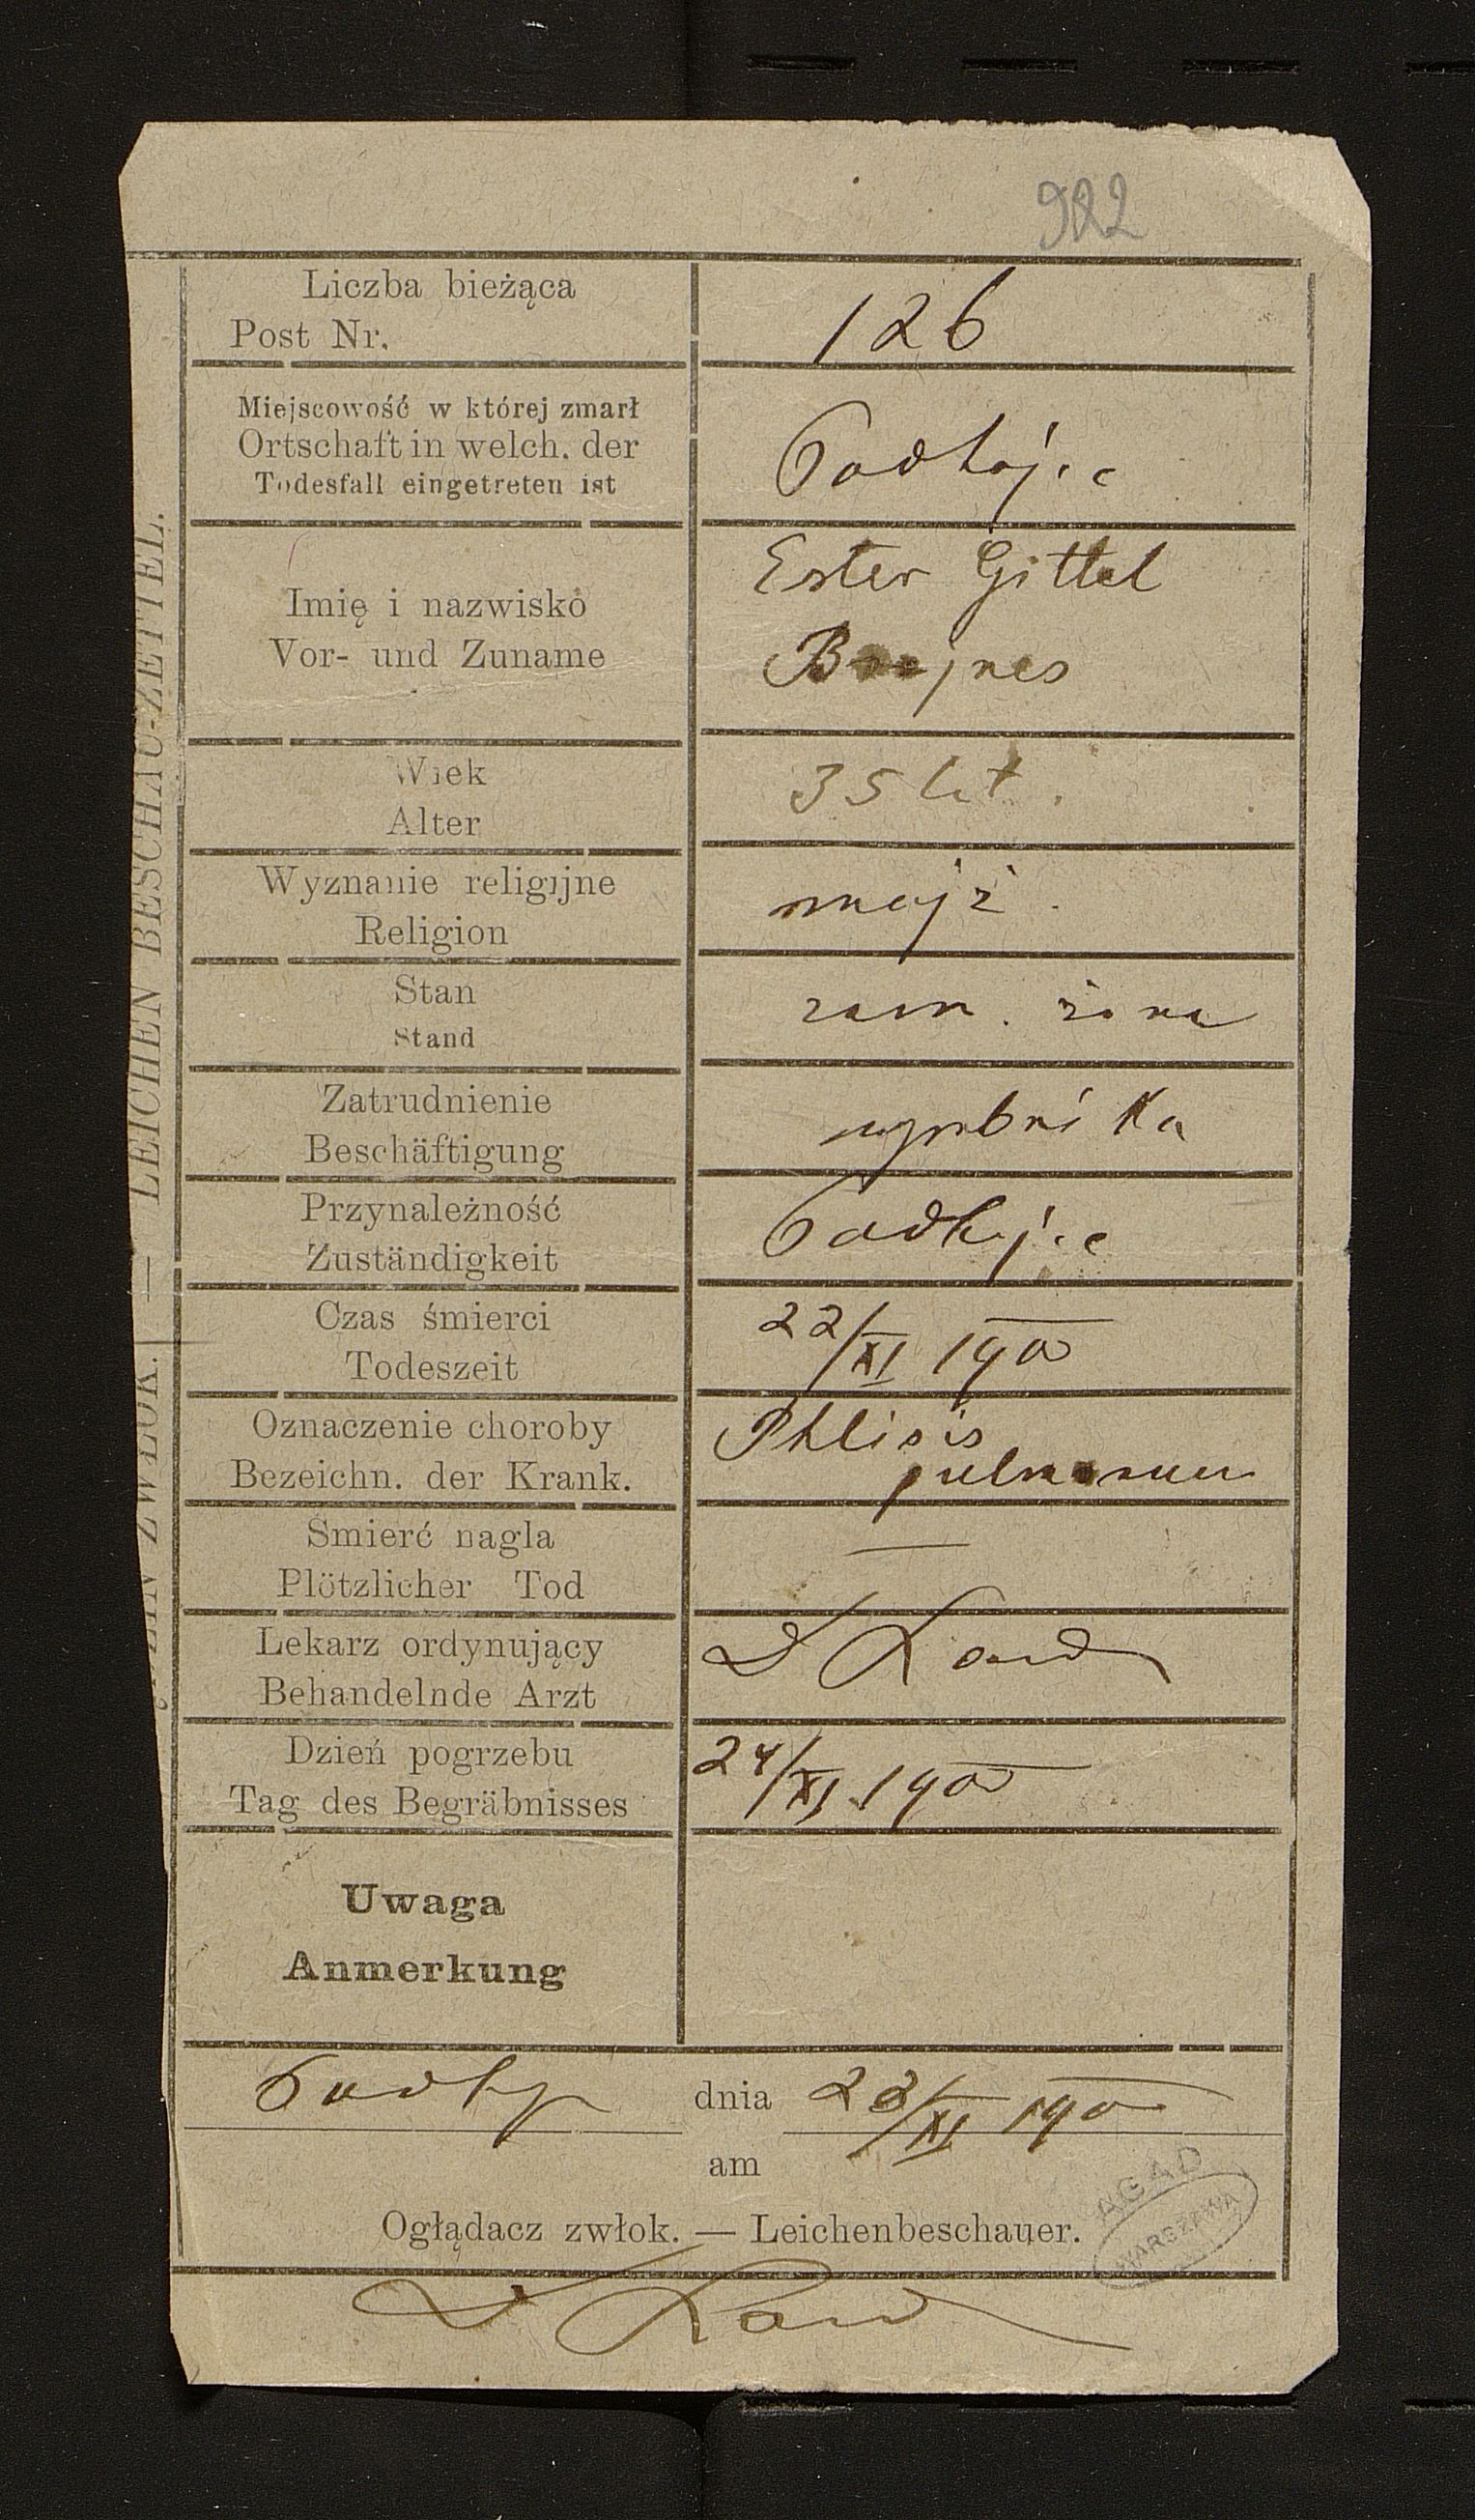 922
Liczba bieżąca
Post Nr.
126
Miejscowość w której zmarł
Ortschaft in welch. der
Todesfall eingetreten ist
Podhajce
Imię i nazwisko
Vor- und Zuname
Ester Gittel
Wiek
Alter
35 lat.
Wyznanie religijne
Religion
mojż.
Stan
Stand
zam. żona
Zatrudnienie
Beschäftigung
Przynależność
Zuständigkeit
Podhajce
Czas śmierci
Todeszeit
22/XI 190
Oznaczenie choroby
Bezeichn. der Krank.
Phtisis
pulmonum
Smierć nagla
Plötzlicher Tod
—
Lekarz ordynujący
Behandelnde Arzt
Dzień pogrzebu
Tag des Begräbnisses
24/XI 190
Uwaga
Anmerkung
Podhj
dnia
am
23/XI 190
Oglądacz zwłok. — Leichenbeschauer.
AGAD
WARSZAWA
ZWŁOK. — LEICHEN BESCHAU-ZETTEL.